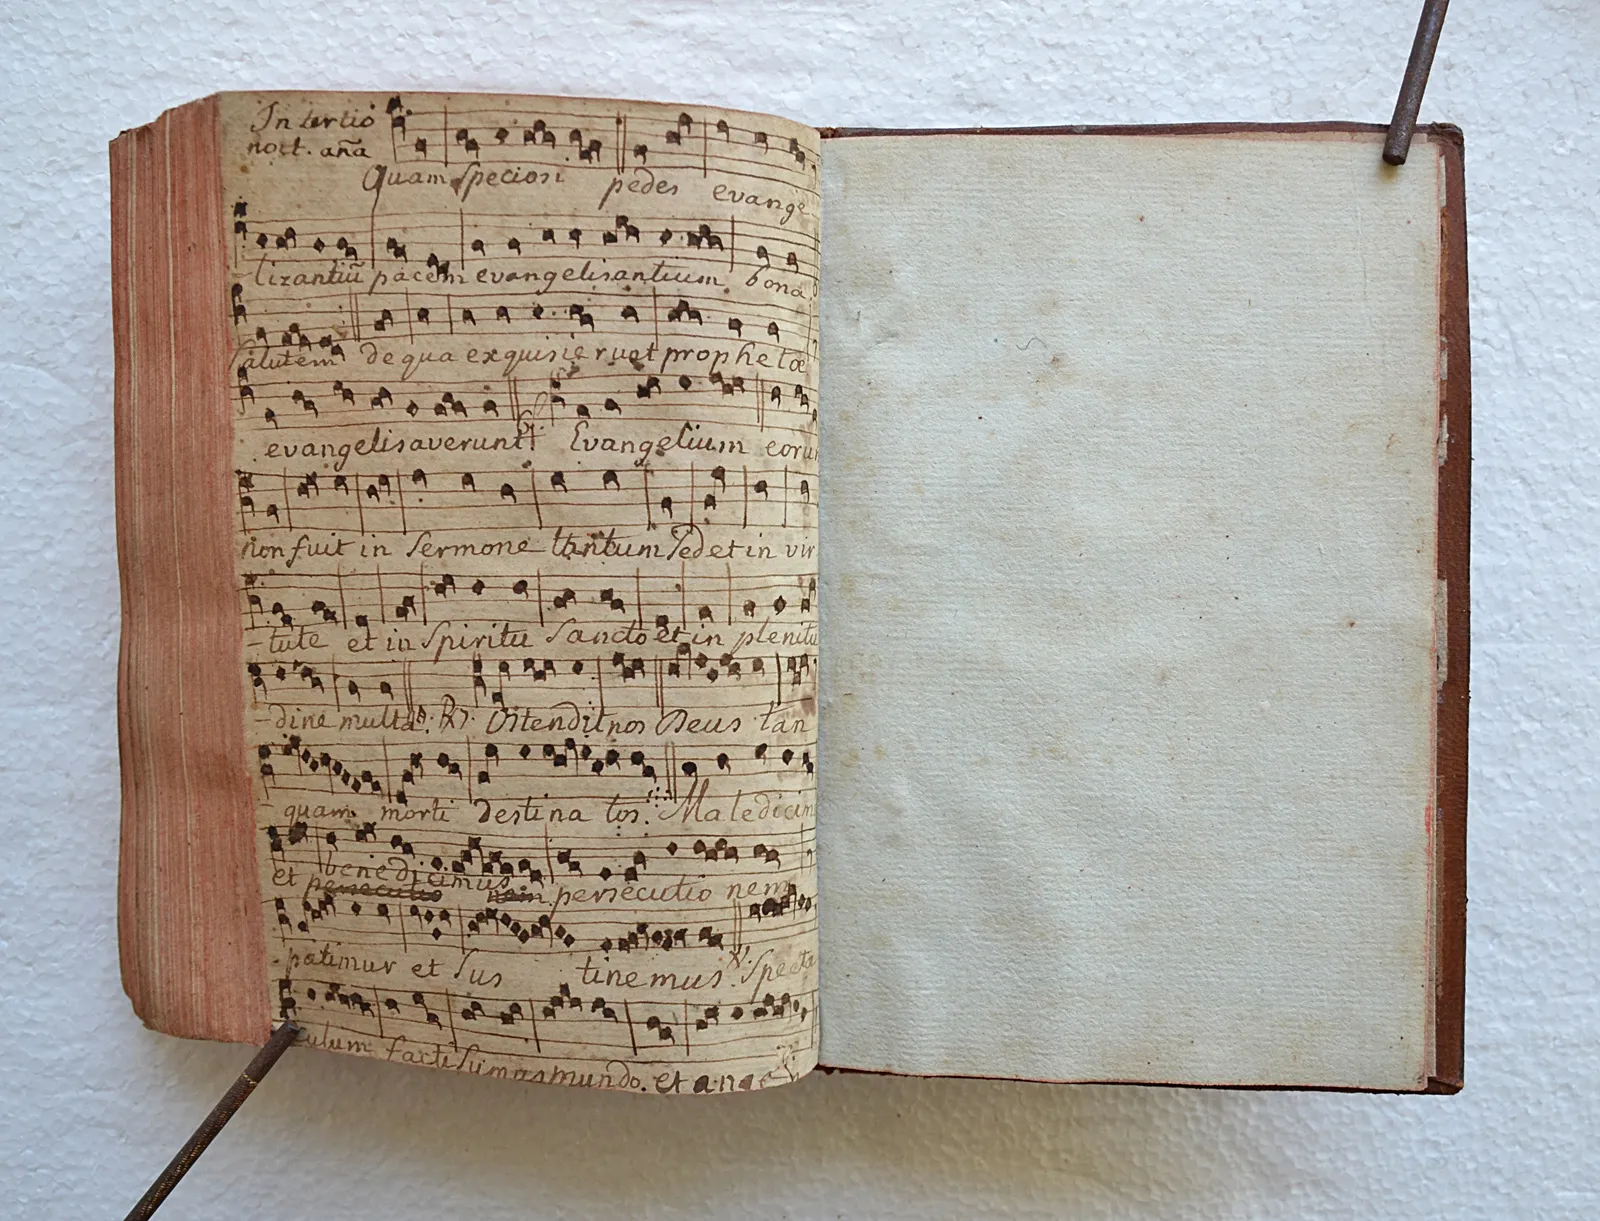 In tertio
noct. aña
Quam speciosi pedes evange
-lizantiũ pacem evangelisantium bona
Salutem de qua exquisierunt prophetæ
evangelisaverunt. Evangelium eoru
non fuit in Sermone tantum Sed et in vir
-tute et in Spiritu Sancto et in plenitu
-dine multa. ℟. Ostendit nos Deus tan
-quam morti destinatos. Maledicim
benedicimus
et persecutio nem persecutionem
patimur et Sustinemus. ℣. Specta
culum facti Sumus mundo. et ange